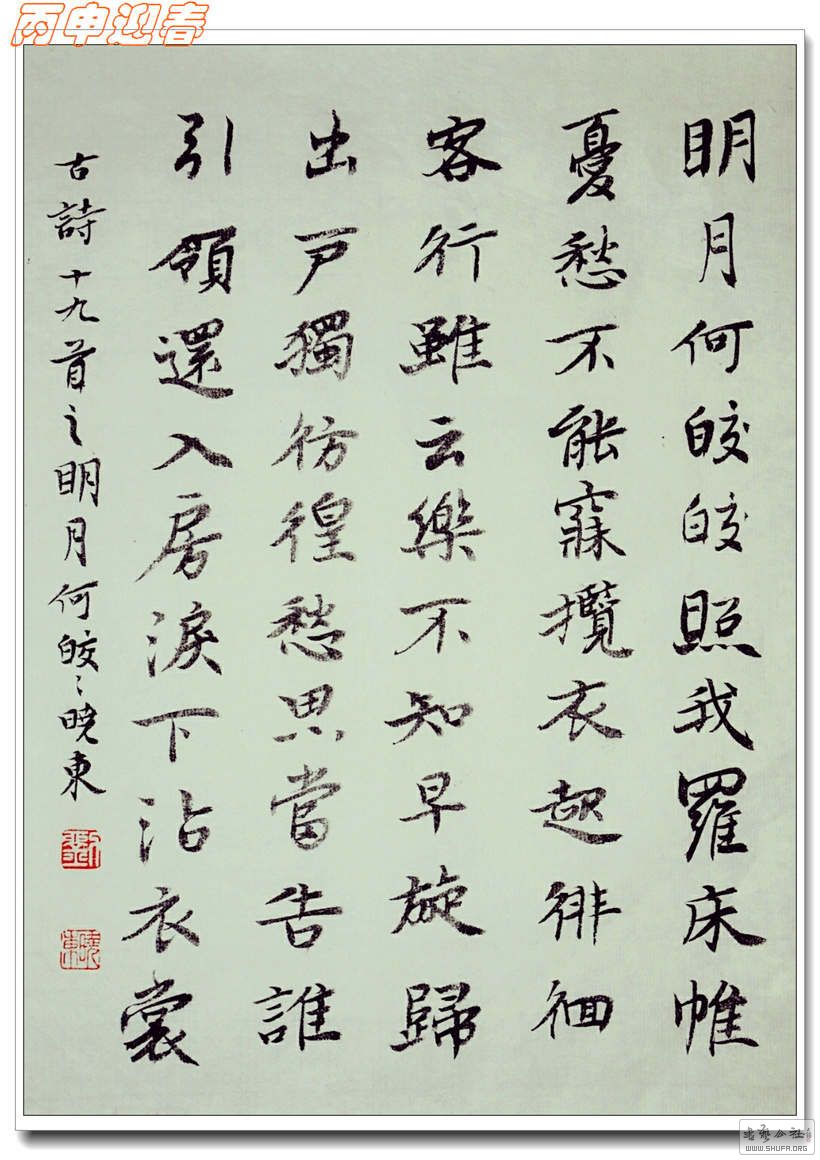 丙申迎春
明月何皎皎照我羅床帷
憂愁不能寐攬衣起徘徊
客行雖云樂不知早旋歸
出戸獨彷徨愁思當告誰
引領還入房淚下沾衣裳
古詩十九首之明月何皎〻曉東
劉
曉東
WWW.SHUFA.ORG